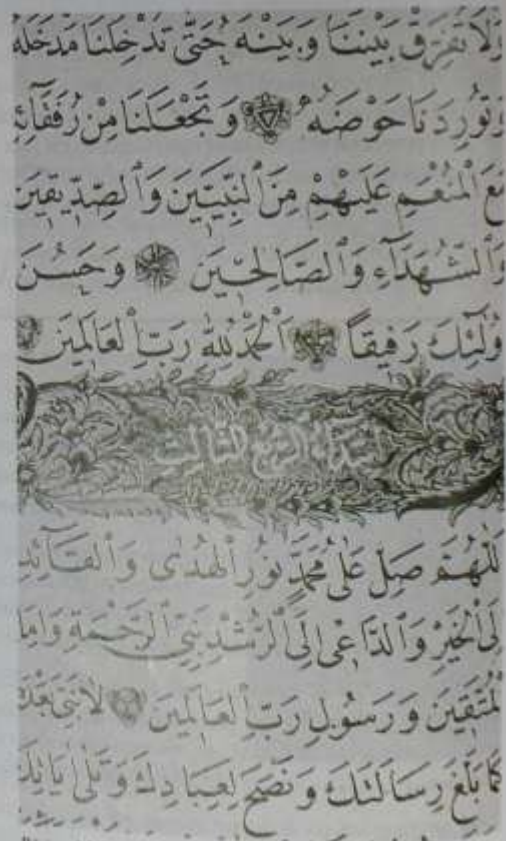 وَلَا تُفَرِّقْ بَيْنَنَا وَبَيْنَهُ حَتَّى تُدْخِلَنَا مَدْخَلَهُ
وَتُورِدَنَا حَوْضَهُ وَتَجْعَلَنَا مِنْ رُفَقَآئِهِ
مَعَ ٱلْمُنْعَمِ عَلَيْهِمْ مِنَ ٱلنَّبِيِّينَ وَٱلصِّدِّيقِينَ
وَٱلشُّهَدَآءِ وَٱلصَّالِحِينَ وَحَسُنَ
أُولَٰئِكَ رَفِيقاً ٱلْحَمْدُ لِلّٰهِ رَبِّ ٱلْعَالَمِينَ
اِبْتِدَاءُ الرُّبْعِ الثَّالِثِ
اَللّٰهُمَّ صَلِّ عَلَى مُحَمَّدٍ نُورِ ٱلْهُدَى وَٱلْقَآئِدِ
إِلَى ٱلْخَيْرِ وَٱلدَّاعِى إِلَى ٱلرُّشْدِ نَبِيِّ ٱلرَّحْمَةِ وَإِمَامِ
ٱلْمُتَّقِينَ وَرَسُولِ رَبِّ ٱلْعَالَمِينَ لَا نَبِيَّ بَعْدَهُ
كَمَا بَلَّغَ رِسَالَتَكَ وَنَصَحَ لِعِبَادِكَ وَتَلَى آيَاتِكَ